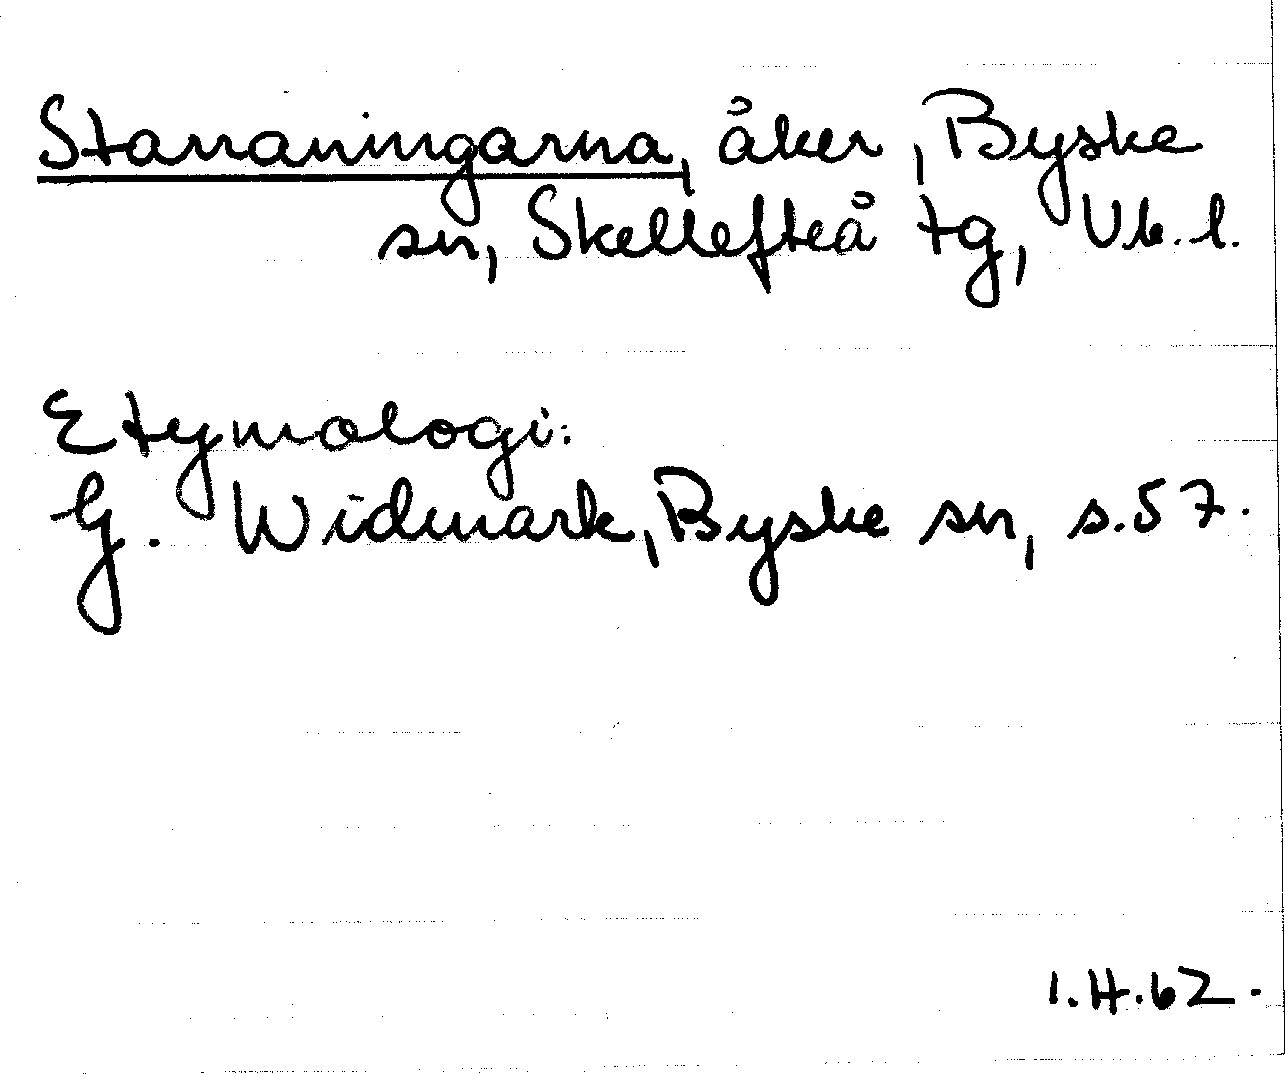 Starraningarna, åker, Byske
sn, Skellefteå tg, Vb. l.
Etymologi:
G. Widmark, Byske sn, s. 57.
I.H.62.